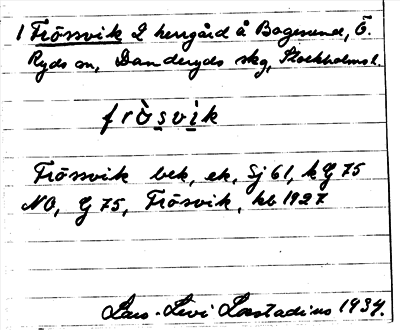 1 Frösvik 2 herrgård å Bogesund, Ö.
Ryds sn, Danderyds skg, Stockholms l.
frö̀svik
Frösvik bek, ek, Sj 61, k G 75
NO, G 75, Frösvik, hb 1927
Lars-Levi Læstadius 1934.